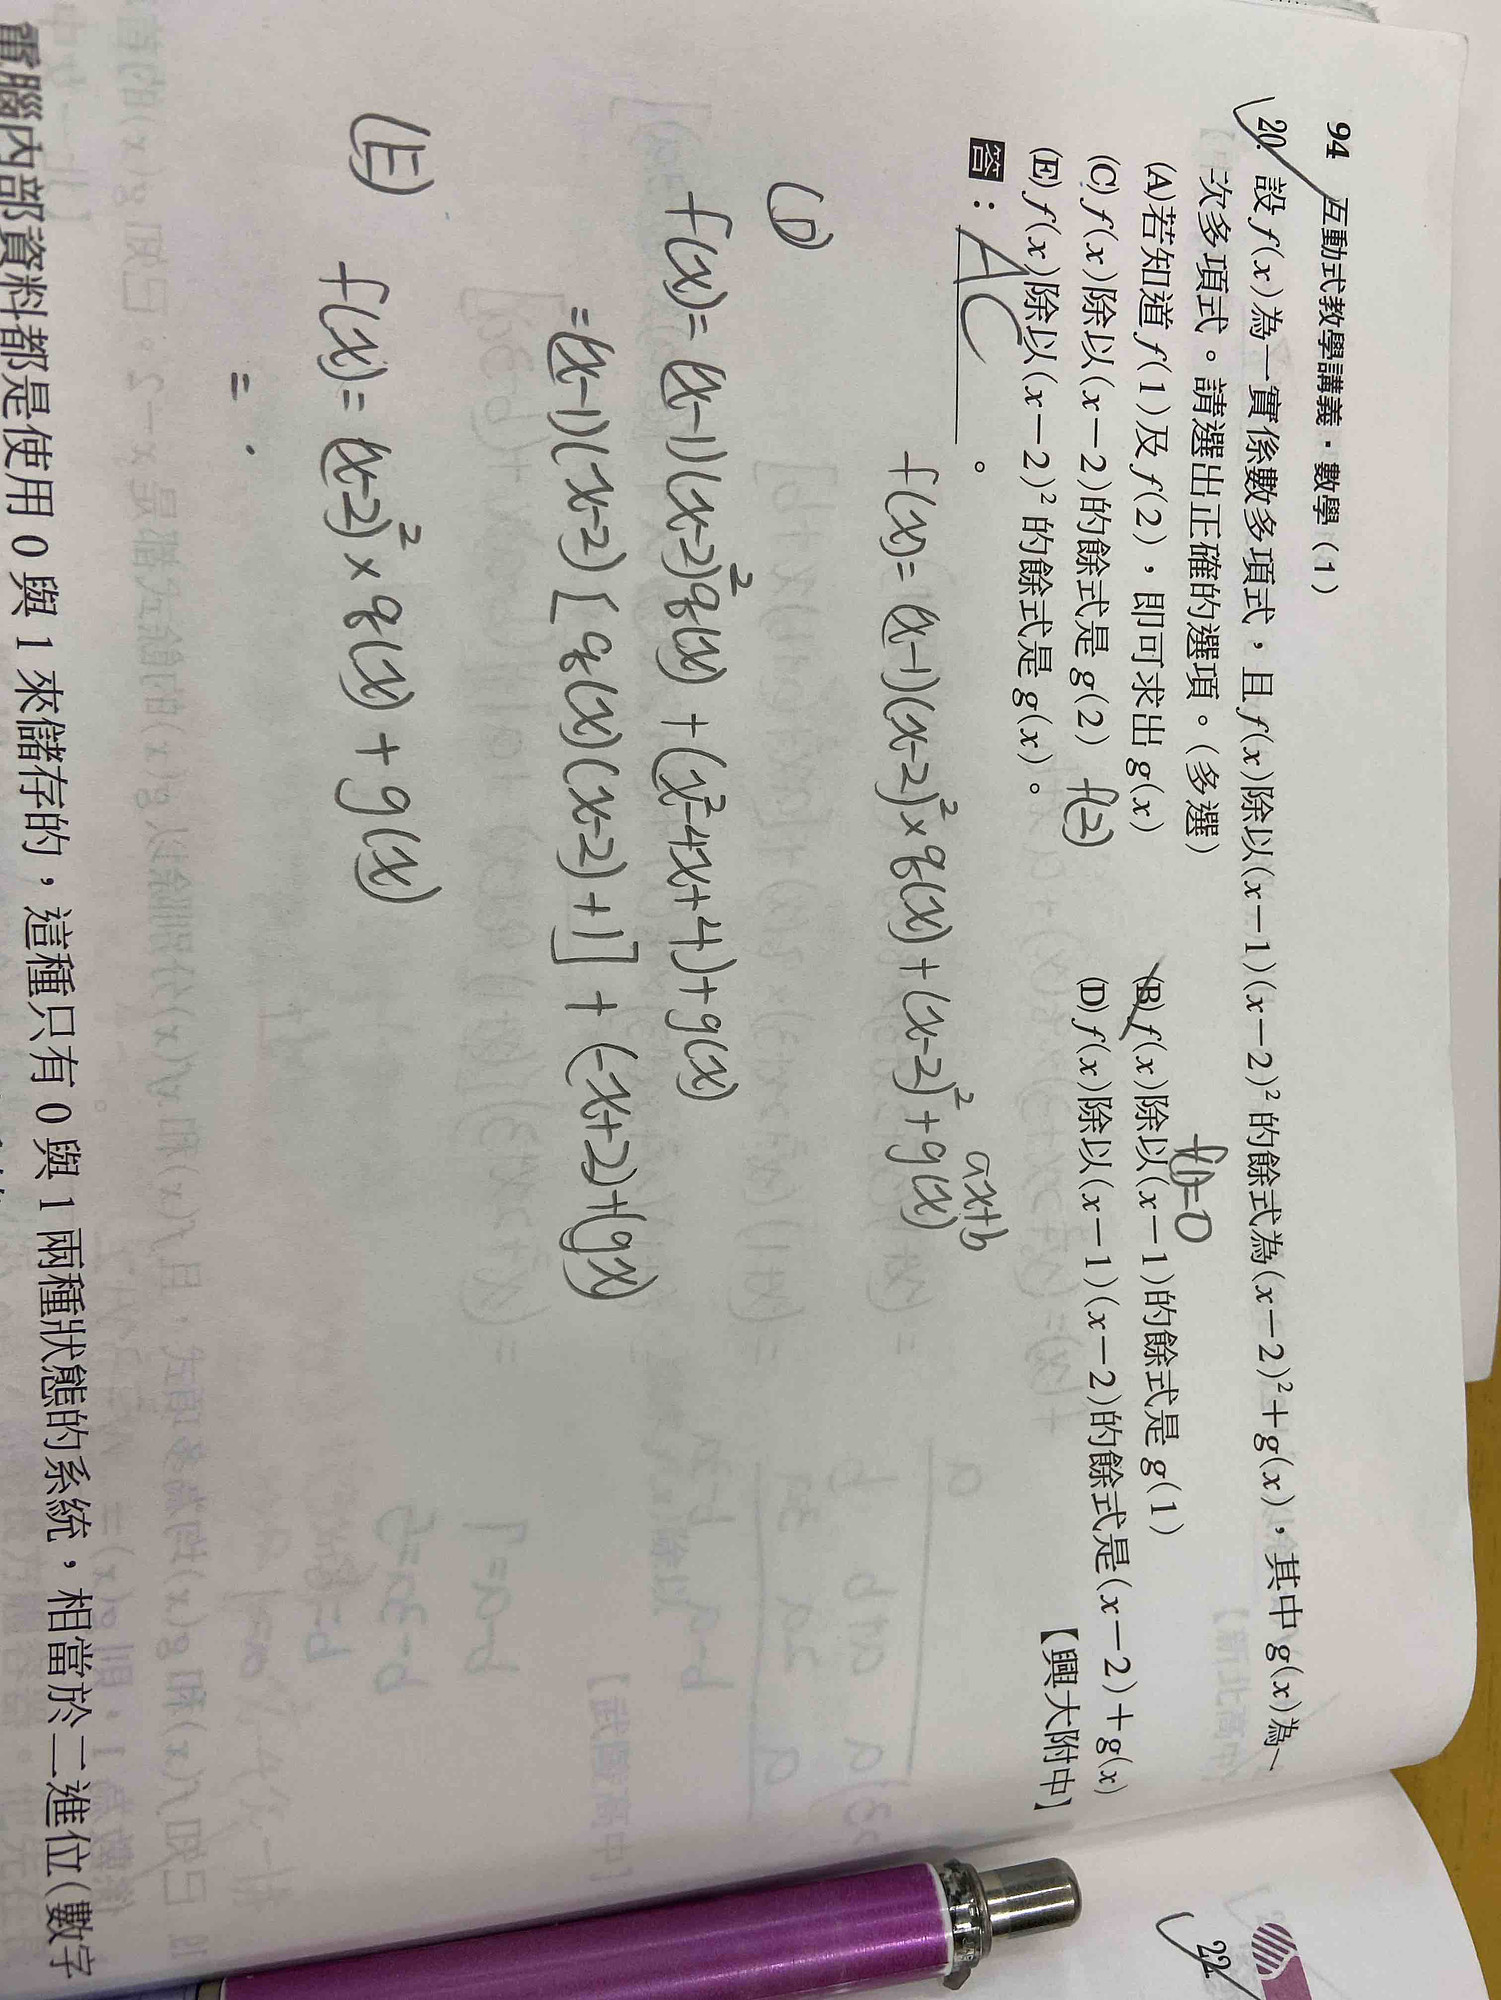 94 互動式教學講義・數學(1)
20. 設f(x)為一實係數多項式，且f(x)除以(x－1)(x－2)²的餘式為(x－2)²＋g(x)，其中g(x)為一
次多項式。請選出正確的選項。(多選)
f(1)=0
(A)若知道f(1)及f(2)，即可求出g(x) (B)f(x)除以(x－1)的餘式是g(1)
(C)f(x)除以(x－2)的餘式是g(2) f(2) (D)f(x)除以(x－1)(x－2)的餘式是(x－2)＋g(x)
(E)f(x)除以(x－2)²的餘式是g(x)。 【興大附中】
答：AC。
ax+b
f(x)=(x-1)(x-2)²×q(x)+(x-2)²+g(x)
(D)
f(x)=(x-1)(x-2)²q(x)+(x²-4x+4)+g(x)
=(x-1)(x-2)[q(x)(x-2)+1]+(-x+2)+(gx)
(E) f(x)=(x-2)²×q(x)+g(x)
=
電腦內部資料都是使用 0 與 1 來儲存的，這種只有 0 與 1 兩種狀態的系統，相當於二進位(數字
22